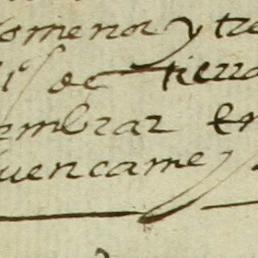 omenor y tre
de tierra
embrar en
uencame